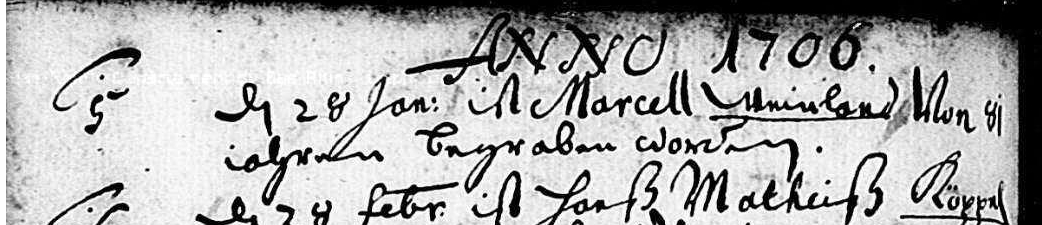 ANNO 1706.
5 den 28 Jan: ist Marcell Weinland Von 81
iahren begraben worden.
den 28 febr. ist Hanß Matheiß Röppel